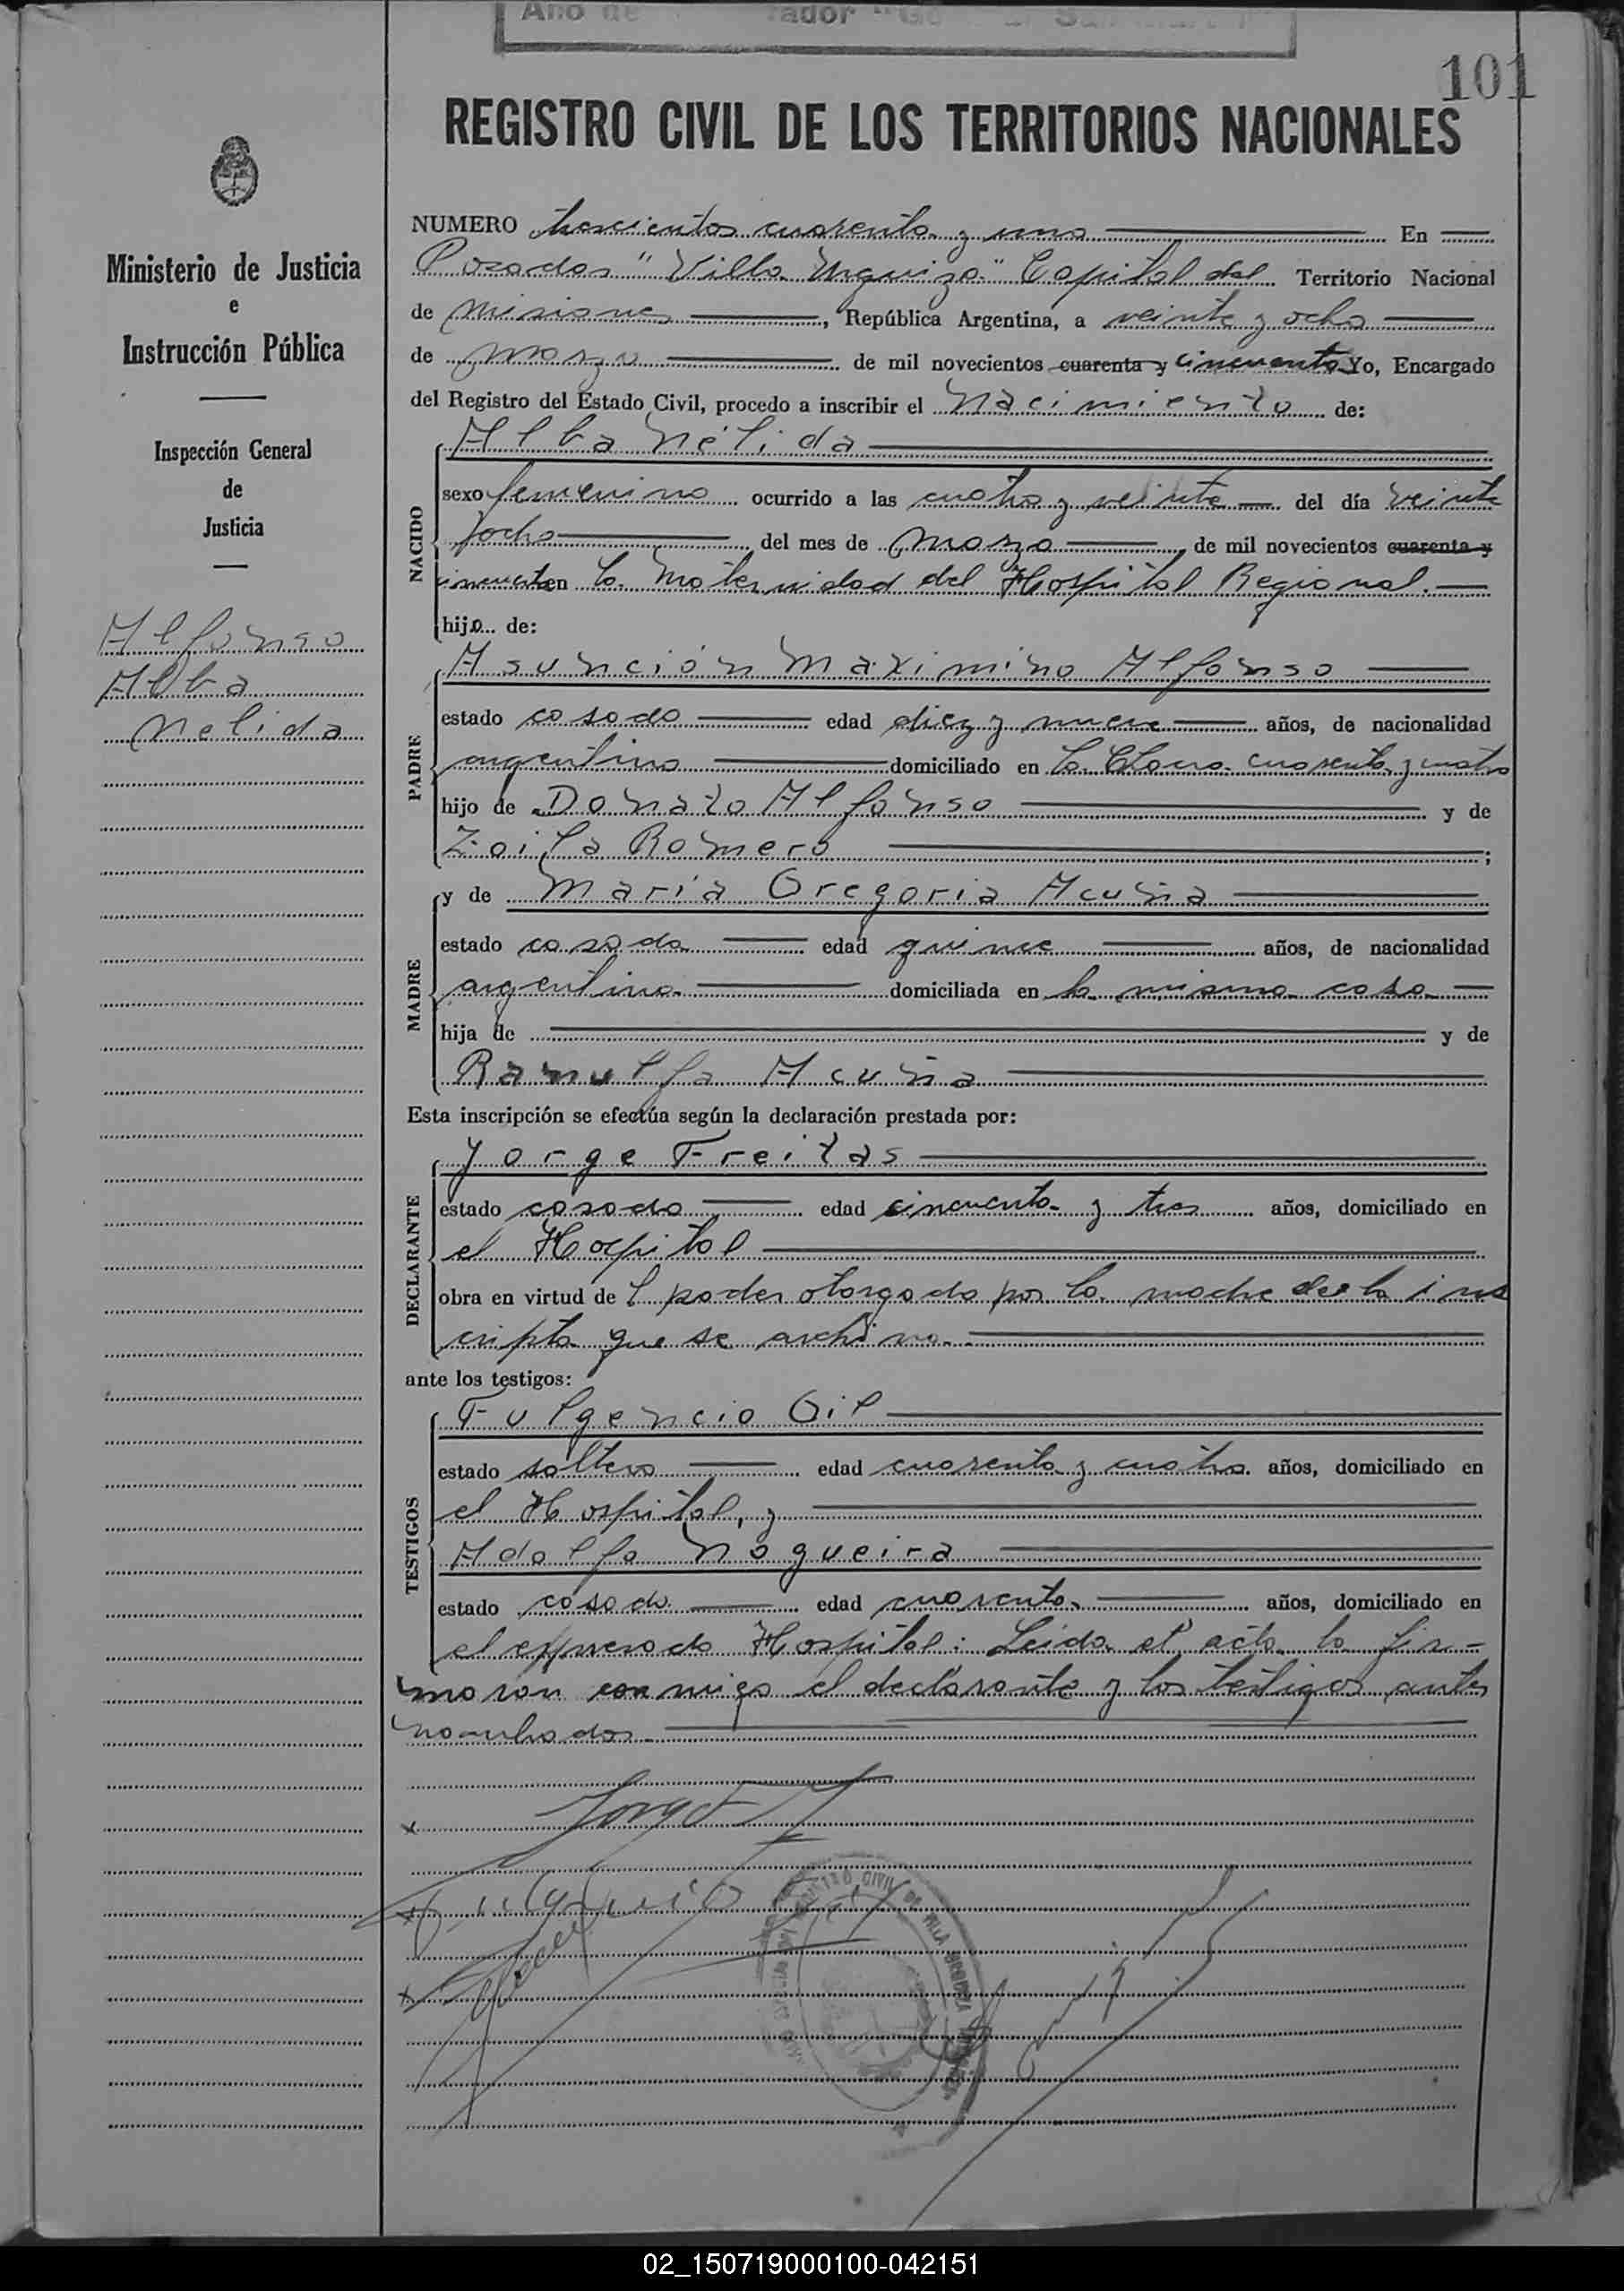 101
REGISTRO CIVIL DE LOS TERRITORIOS NACIONALES
Ministerio de Justicia
e
Instrucción Pública
Inspección General
de
Justicia
Alfonso
Alba
Nelida
NUMERO trescientos cuarenta y uno En
Posadas "Villa Urquiza" Capital del Territorio Nacional
de Misiones, República Argentina, a veinte y ocho
de marzo de mil novecientos cuarenta y cincuenta Yo, Encargado
del Registro del Estado Civil, procedo a inscribir el Nacimiento de:
NACIDO
Alba Nélida
sexo femenino ocurrido a las cuatro y veinte del día veinte
y ocho del mes de marzo de mil novecientos cuarenta y
cincuenta en la Maternidad del Hospital Regional.
hija de:
PADRE
Asunción Maximino Alfonso
estado casado edad diez y nueve años, de nacionalidad
argentino domiciliado en la Chacra cuarenta y cuatro
hijo de Donato Alfonso y de
Zoila Romero;
MADRE
y de María Gregoria Acuña
estado casada edad quince años, de nacionalidad
argentina domiciliada en la misma casa
hija de y de
Ramulfa Acuña
Esta inscripción se efectúa según la declaración prestada por:
DECLARANTE
Jorge Freitas
estado casado edad cincuenta y tres años, domiciliado en
el Hospital
obra en virtud del poder otorgado por la madre de la ins
cripta que se archiva.
ante los testigos:
TESTIGOS
Fulgencio Gil
estado soltero edad cuarenta y cuatro años, domiciliado en
el Hospital, y
Adolfo Nogueira
estado casado edad cuarenta años, domiciliado en
el expresado Hospital: Leida el acta la fir-
maron conmigo el declarante y los testigos antes
nombrados.
Jorge F
02_150719000100-042151